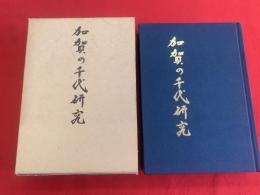 加賀の千代研究
加賀の千代研究